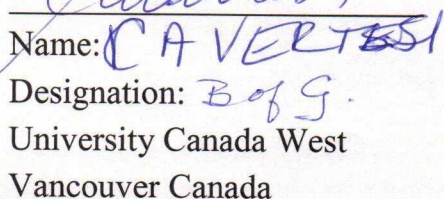 Name: C A VERTESI
Designation: B of G.
University Canada West
Vancouver Canada